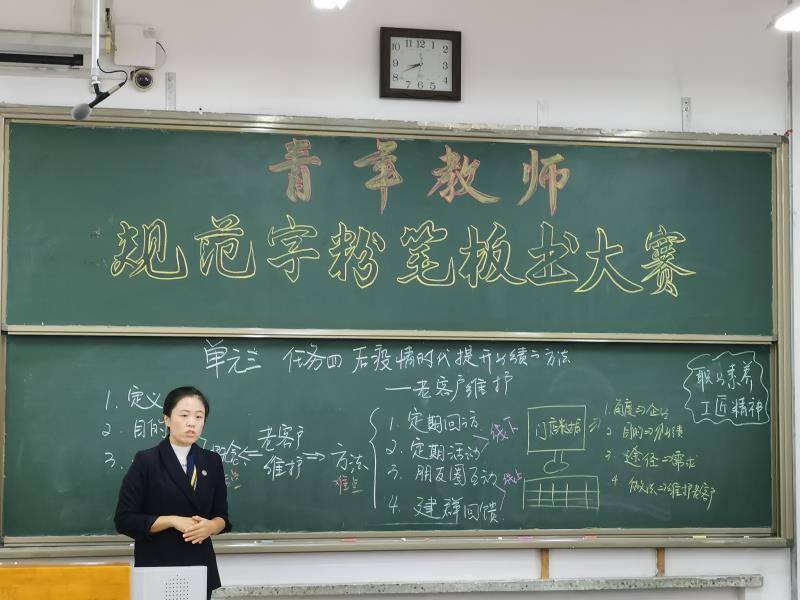 青年教师
规范字粉笔板书大赛
单元三 任务四 后疫情时代提升业绩之方法
——老客户维护
职业素养
工匠精神
1. 定义
2. 目的
3.
概念
老客户
维护
方法
难点
1. 定期回访
2. 定期活动
3. 朋友圈互动
4. 建群回馈
线下
线上
1. 角度⇒企业
2. 目的⇒业绩
3. 途径⇒需求
4 做法⇒维护老客户
10 11 12 1 2 3 4 5 6 7 8 9